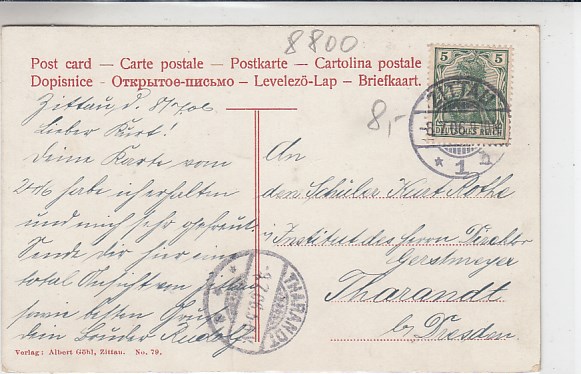 8800
Post card — Carte postale — Postkarte — Cartolina postale
Dopisnice - Открытое-письмо - Levelezö-Lap - Briefkaart.
8,-
5 5
DEUTSCHES REICH
ZITTAU
-8.7.06.
* 1 b
Zittau, d. 8/7.06
Lieber Kurt!
Deine Karte vom
24/6 habe ich erhalten
und mich sehr gefreut.
Sende dir hier eine
total Ansicht von Zittau
sowie besten Gruß
dein Bruder Rudolf
An
den Schüler Kurt Rothe
i/ Institut des Herrn Direktor
Gerstmeyer
Tharandt
b/ Dresden
THARANDT
-9.7.06.
Verlag: Albert Göhl, Zittau. No. 79.